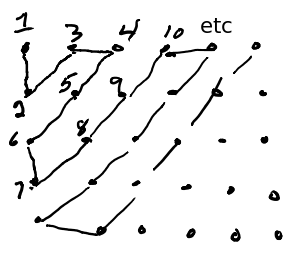 1 3 4 10 etc
2 5 9
6 8
7